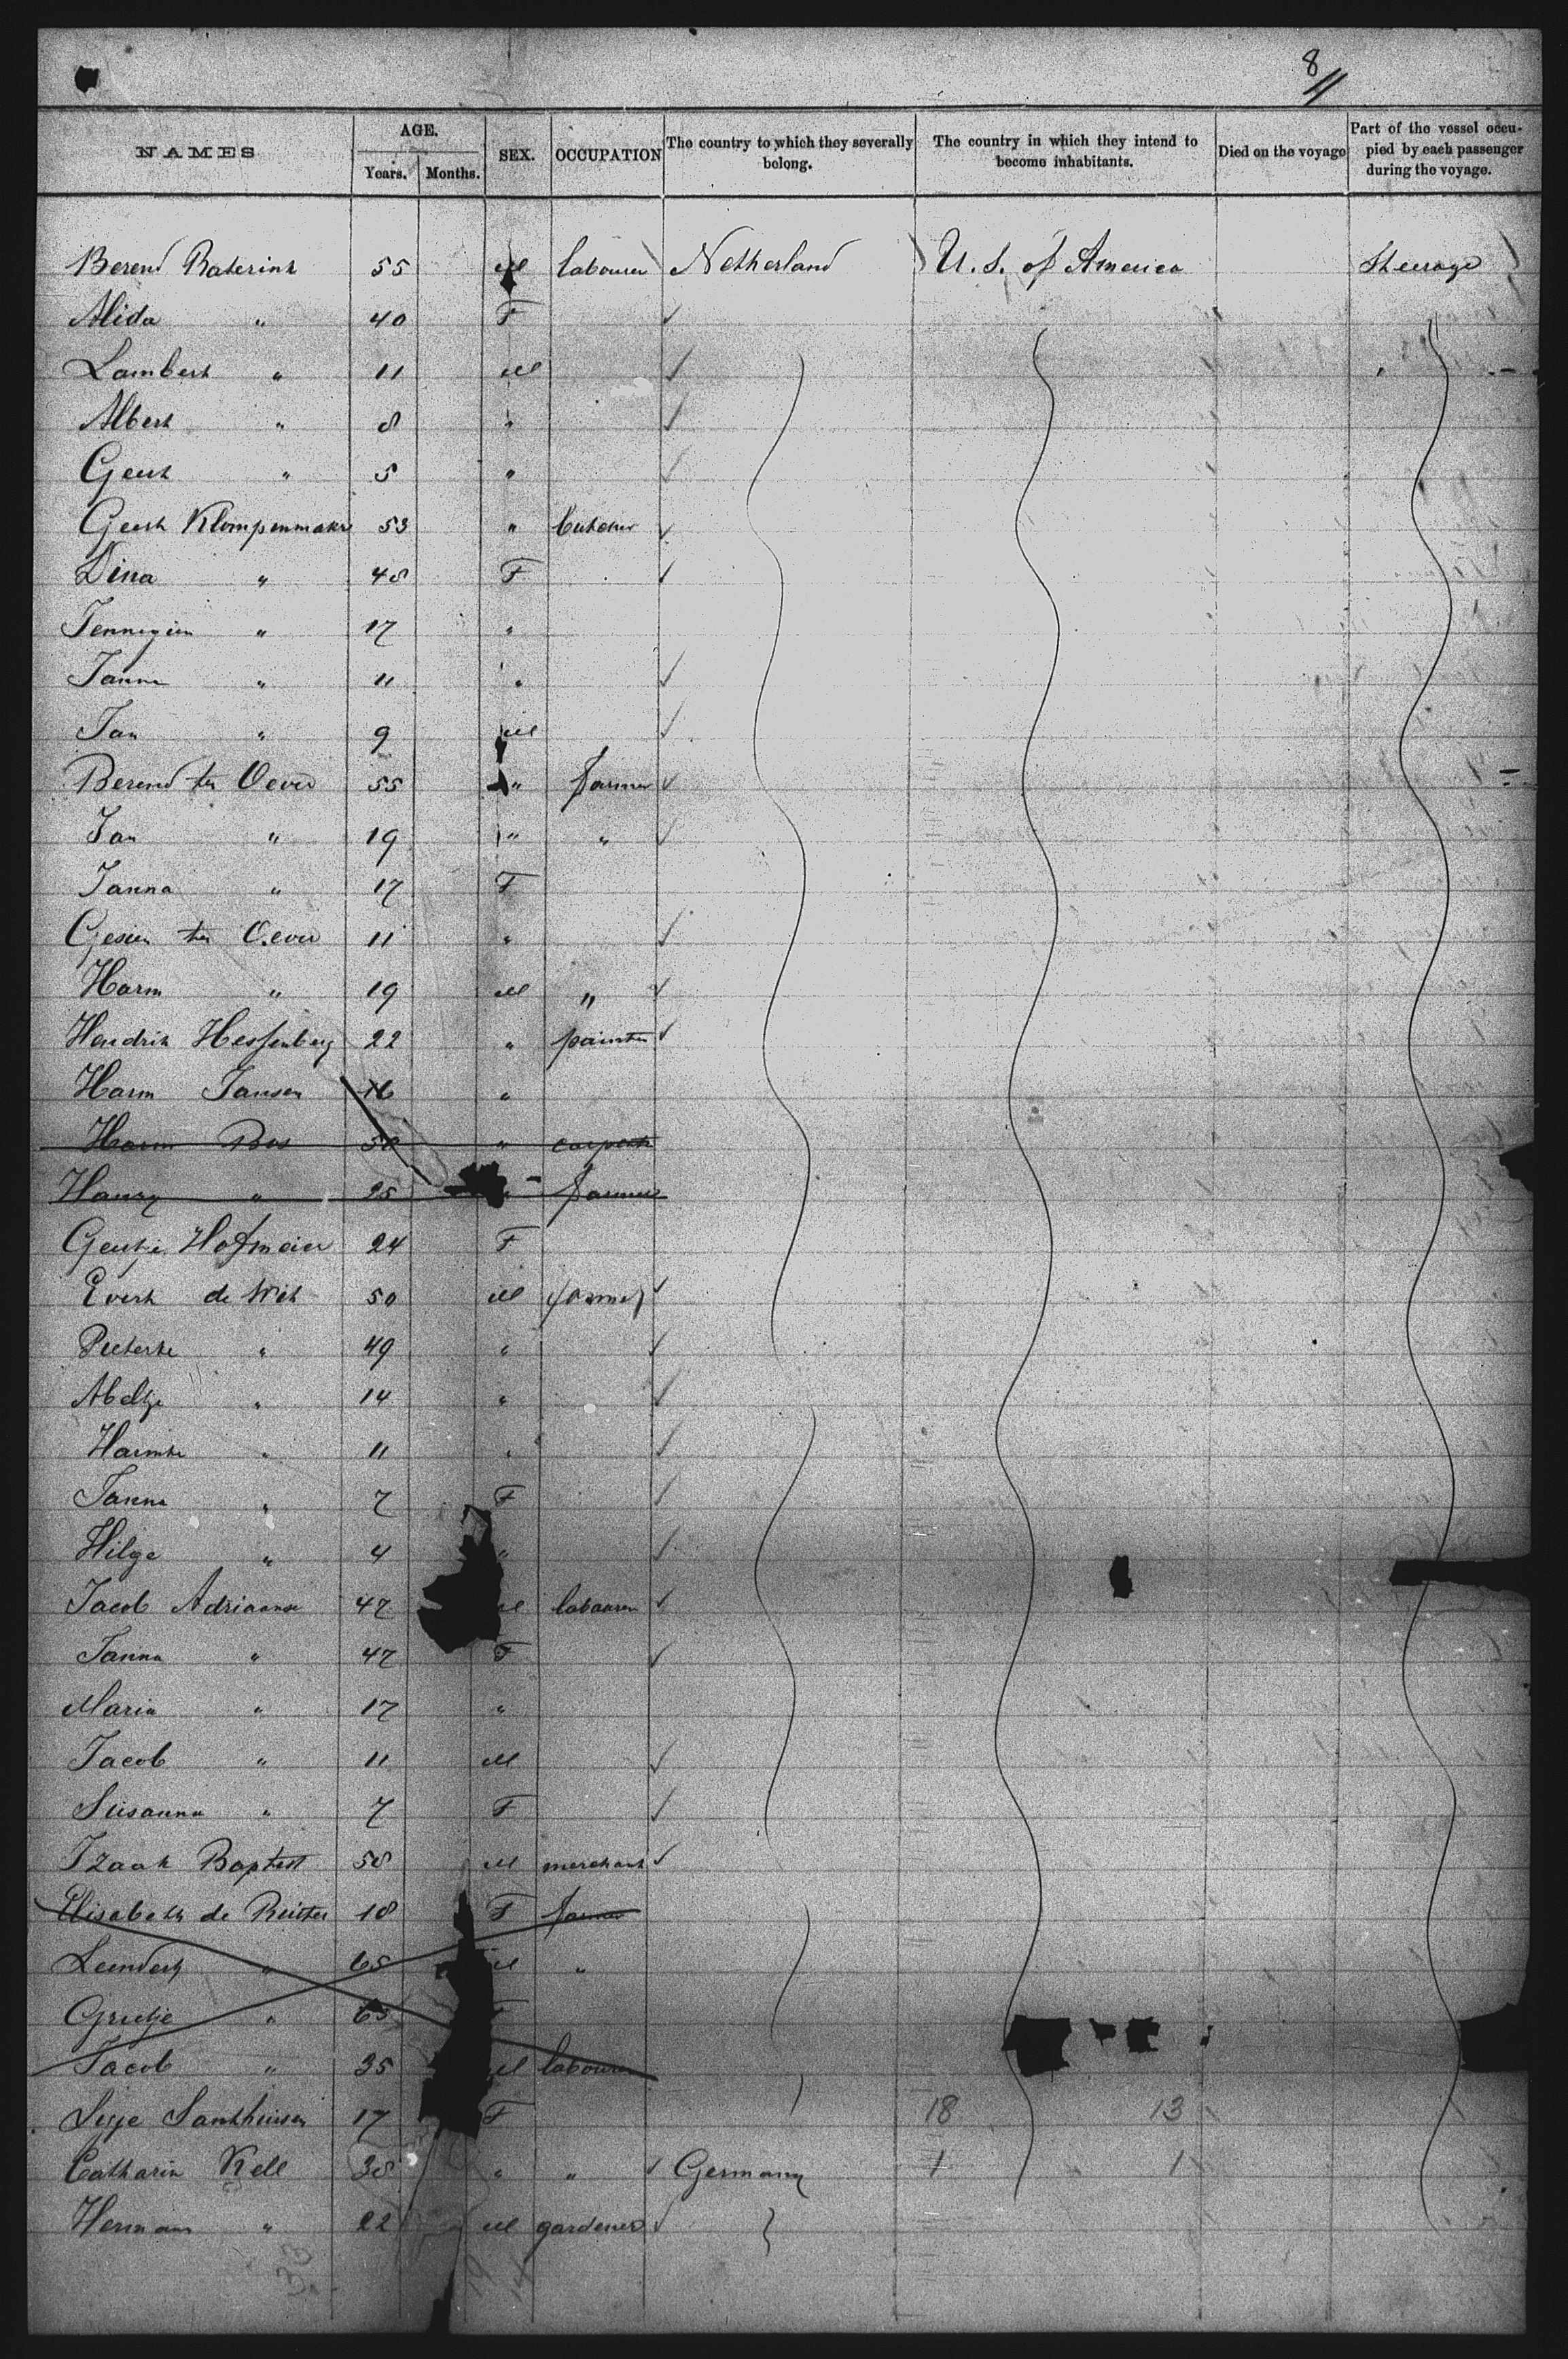 8/11
NAMES AGE. Years. Months. SEX. OCCUPATION The country to which they severally belong. The country in which they intend to become inhabitants. Died on the voyage Part of the vessel occupied by each passenger during the voyage.
Berend Raterink 55 M labourer Netherland U. S. of America Steerage
Alida " 40 F
Lambert " 11 M
Albert " 8 "
Geert " 5 "
Geert Klompenmaker 53 "
Dina " 48 F
Jennigien " 17 "
Janna " 11 "
Jan " 9 M
Berend ter Oever 55 " farmer
Jan " 19 " "
Janna " 17 F
Gesien ter Oever 11 "
Harm " 19 M "
Hendrik Hessenberg 22 " painter
Harm Jansen 16 "
Harm Bos 50 " carpenter
Harry " 25 " farmer
Geertje Hofmeier 24 F
Evert de Wit 50 M farmer
Pieterke " 49 "
Abeltje " 14 "
Harmke " 11 "
Janna " 7 F
Hilge " 4 "
Jacob Adriaanse 47 M labourer
Janna " 47 F
Maria " 17 "
Jacob " 11 M
Susanna " 7 F
Izaak Baptist 58 M merchant
Elisabeth de Ruiter 18 F farmer
Leendert " 65 M "
Grietje " 65 F
Jacob " 35 M labourer
Lesje Santhuisen 17 F 18 13
Catharin Kell 38 " " Germany 1 1
Hermann " 22 M gardener
33 19 14